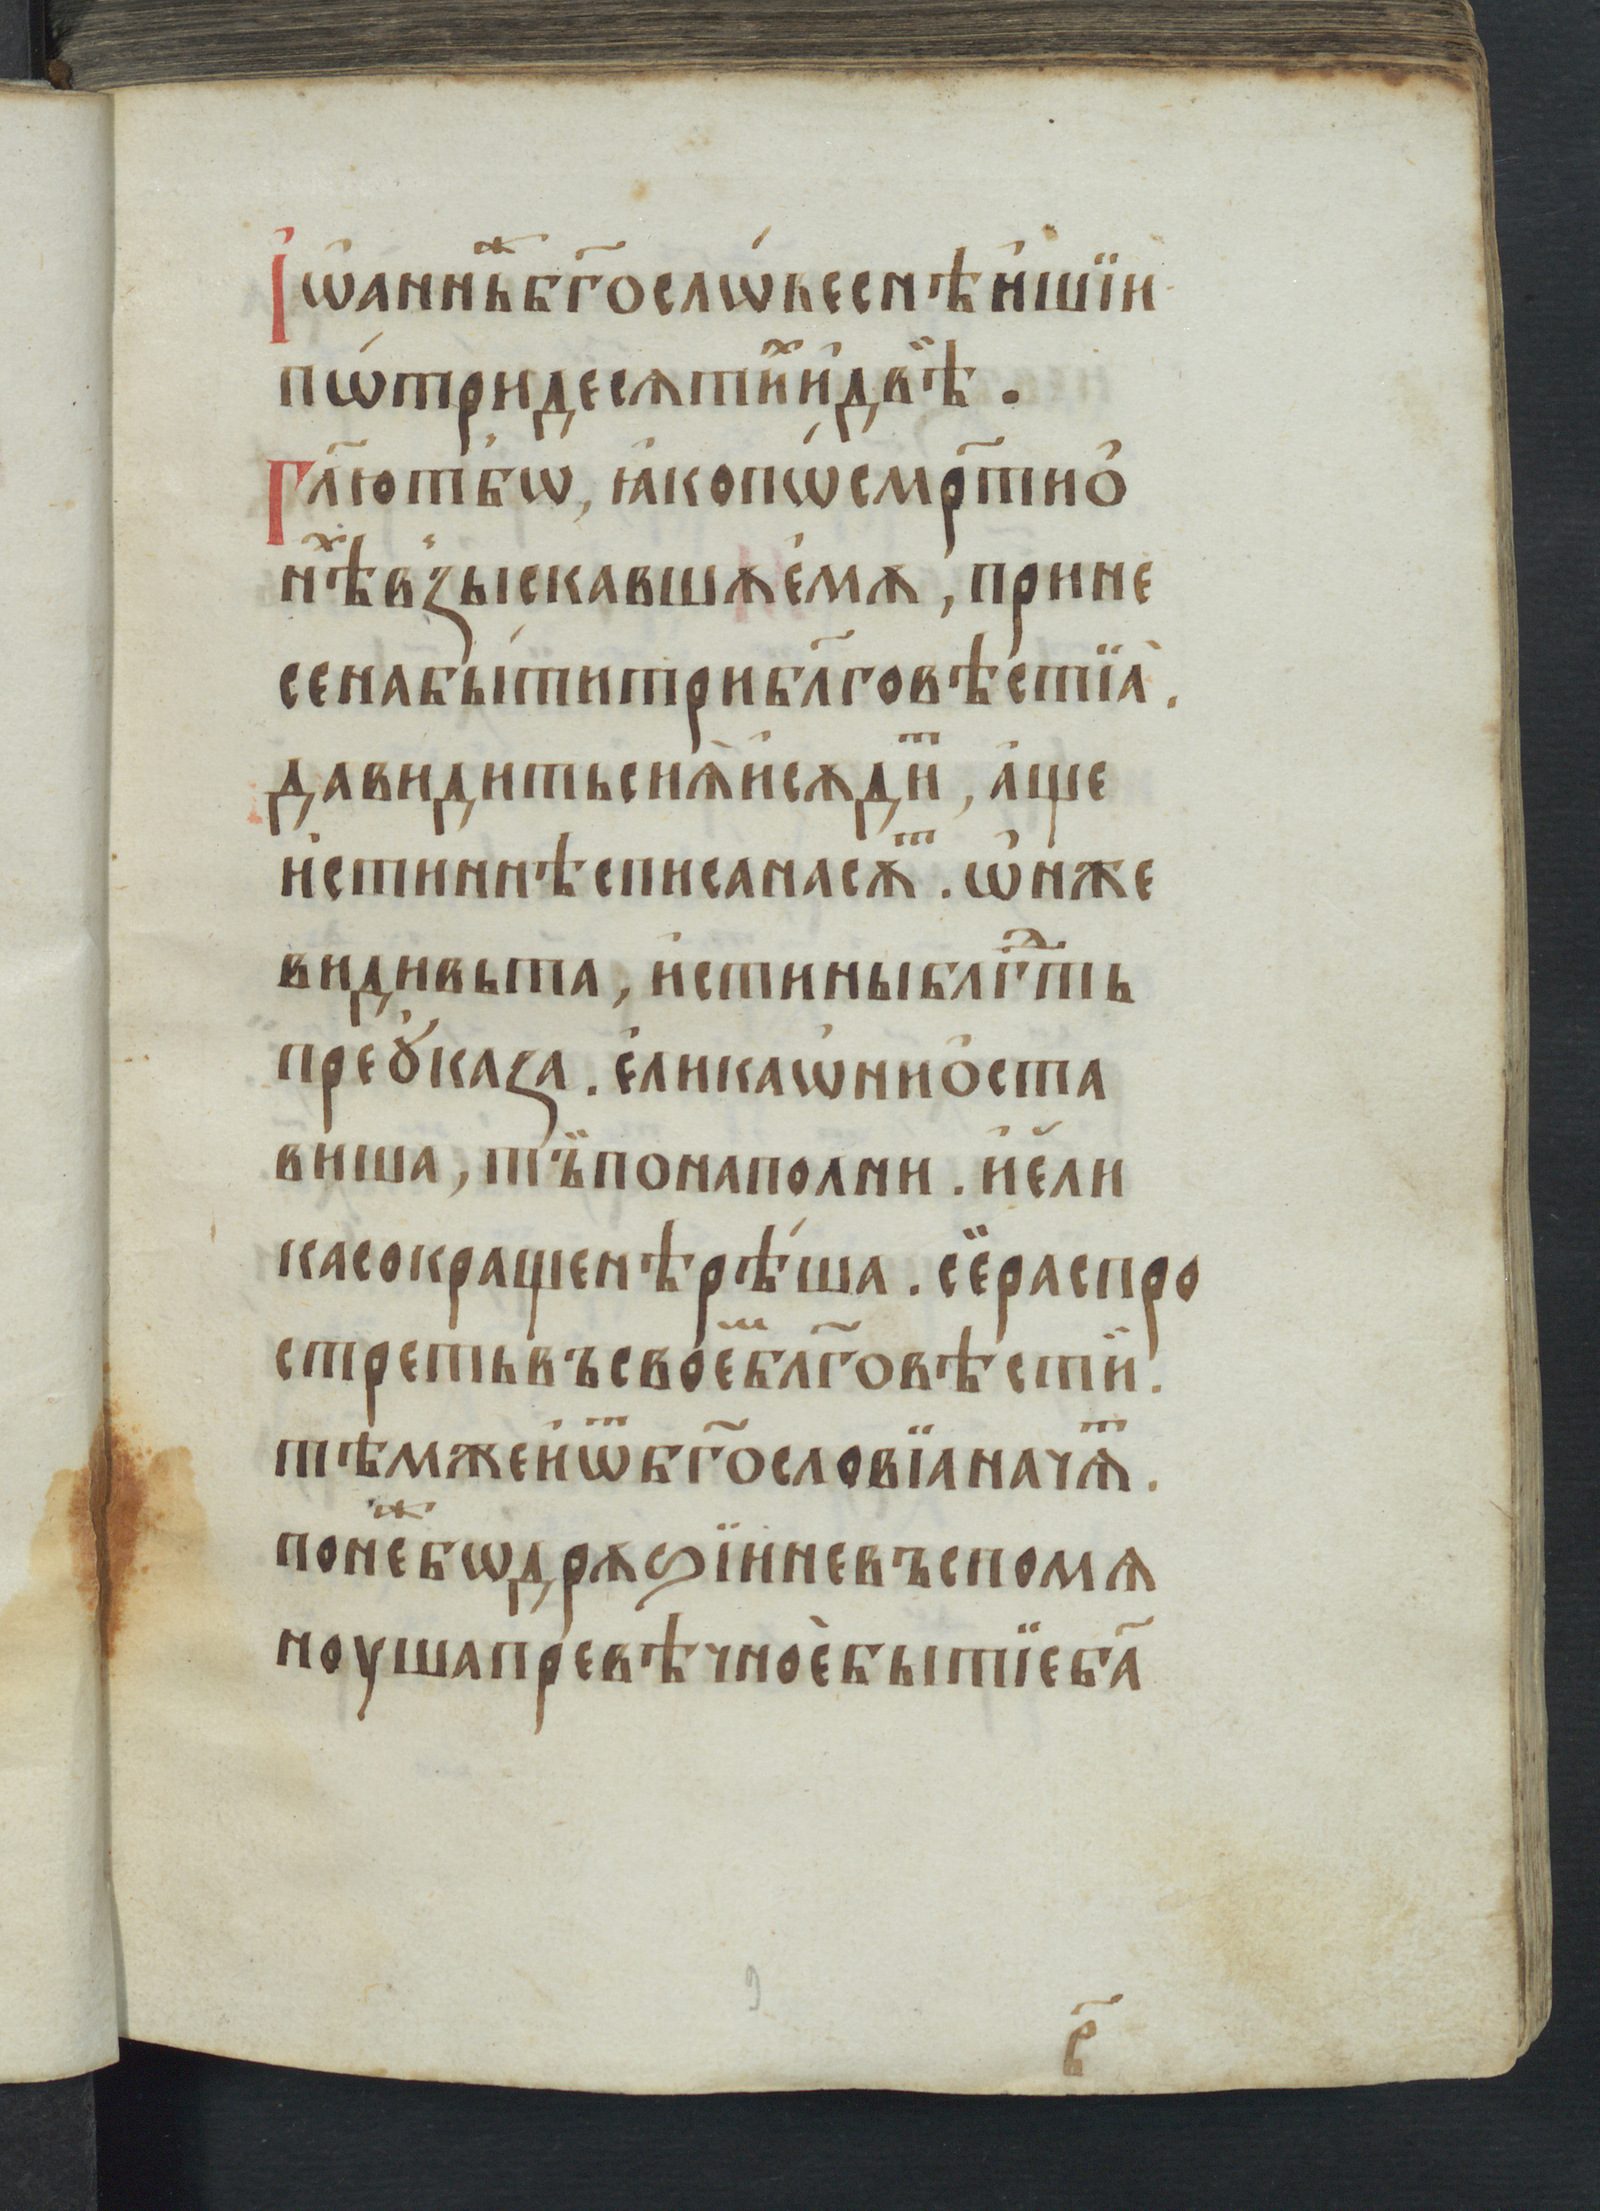 Іѡ҆анньⷤбг҃ослѡ́веснѣ́ншїи
пѡ́тридесѧтиⷯи҆двѣ̈ .
Гл҃ютьбѡ, ꙗ҆копѡ́смр҃тно
нѣⷯвꙁыскавшѧе҆мѧ, прине
сенабы́титрибл҃говѣстїа̀.
давидитьсиѧ̀и҆сѧдиⷮ, а҆ще
и҆стиннѣсписанасѧⷮ. ѡ҆нже
видивьта, и҆стиныблгⷣ҇ть
преꙋ҆каꙁа. е҆ликаѡ҆нио҆ста
виша, тъ̈понаполни. и҆е҆ли
касокращенѣрѣ́ша. сїераспро
стретьвъсвоеⷨбл҃говѣстӥ.
тѣмжеи҆ѿбг҃ословїаначѧⷮ.
понеⷤбѡдрѧѕїиневъспомѧ
ноушапревѣчноѐбытїеба҃
в҃
9